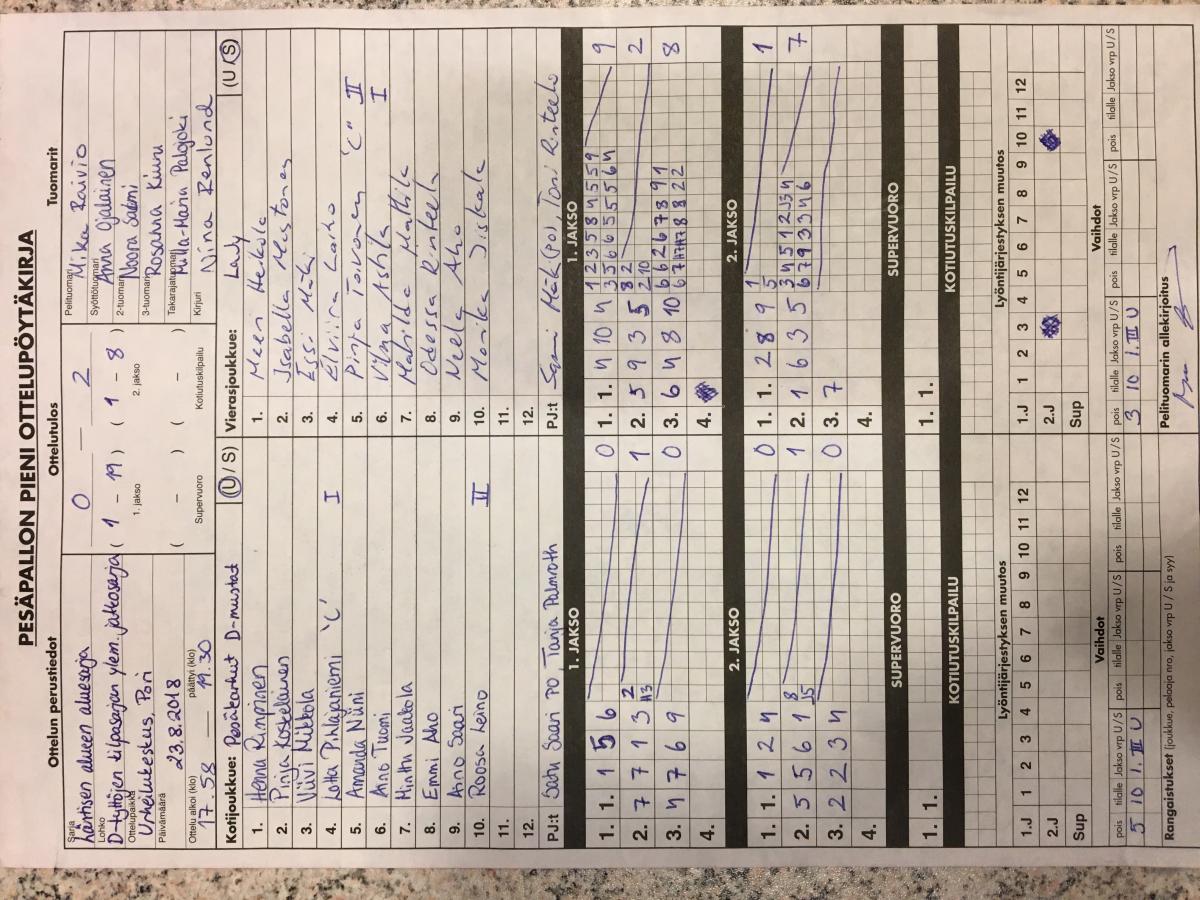 PESÄPALLON PIENI OTTELUPÖYTÄKIRJA
Ottelun perustiedot
Sarja
Läntisen alueen aluesarja
Lohko
D-tyttöjen kilpasarjan ylem. jatkosarja
Ottelupaikka
Urheilukeskus, Pori
Päivämäärä
23.8.2018
Ottelu alkoi (klo) päättyi (klo)
17.58 — 19.30
Ottelutulos
0 — 2
( 1 - 19 ) ( 1 - 8 )
1. jakso 2. jakso
( - ) ( - )
Supervuoro Kotiutuskilpailu
Tuomarit
Pelituomari Mika Raivio
Syöttötuomari Anna Ojalainen
2-tuomari Noora Salmi
3-tuomari Rosanna Kiuru
Takarajatuomari Milla-Maria Palojoki
Kirjuri Nina Renlund
Kotijoukkue: Pesäkarhut D-mustat (U / S)
1. Henna Rimpinen
2. Pinja Koskelainen
3. Viivi Mikkola
4. Lotta Pihlajaniemi "C" I
5. Amanda Niini
6. Aino Tuomi
7. Minttu Jaakola
8. Emmi Aho
9. Aino Saari
10. Roosa Leino II
11.
12.
PJ:t Satu Saari PO Tanja Palmroth
Vierasjoukkue: Lady (U / S)
1. Meeri Herkola
2. Isabella Mustonen
3. Essi Mäki
4. Elviira Laiho
5. Pinja Toivonen "C" II
6. Vilma Ashita I
7. Matilda Mattila
8. Odessa Rinteelä
9. Neela Aho
10. Monika Jiskala
11.
12.
PJ:t Sami Mäki (PO), Toni Rinteelä
1. JAKSO
1. 1. 1 5 6 0
2. 7 7 1 3 2 H3 1
3. 4 7 6 9 0
4.
2. JAKSO
1. 1. 1 2 4 0
2. 5 5 6 1 8 15 1
3. 2 2 3 4 0
4.
SUPERVUORO
1. 1.
KOTIUTUSKILPAILU
1. JAKSO
1. 1. 4 10 4 1 2 3 5 8 4 5 5 9 9
3 5 6 6 5 5 5 6 4
2. 5 9 3 5 8 2 2
2 10
3. 6 4 8 10 6 6 2 6 7 8 9 1 8
6 7 H7 H7 8 8 2 2
4.
2. JAKSO
1. 1. 2 8 9 1 1
5
2. 1 6 3 5 3 4 5 1 2 3 4 7
6 7 9 3 3 4 6
3. 7
4.
SUPERVUORO
1. 1.
KOTIUTUSKILPAILU
Lyöntijärjestyksen muutos
1.J 1 2 3 4 5 6 7 8 9 10 11 12
2.J
Sup
Vaihdot
pois tilalle Jakso vrp U/S pois tilalle Jakso vrp U/S pois tilalle Jakso vrp U/S
5 10 1. III U
Rangaistukset (joukkue, pelaaja nro, jakso vrp U / S ja syy)
Lyöntijärjestyksen muutos
1.J 1 2 3 4 5 6 7 8 9 10 11 12
2.J
Sup
Vaihdot
pois tilalle Jakso vrp U/S pois tilalle Jakso vrp U/S pois tilalle Jakso vrp U/S
3 10 1. III U
Pelituomarin allekirjoitus